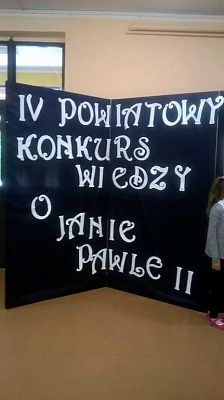 IV POWIATOWY
KONKURS
WIEDZY
O
JANIE
PAWLE II